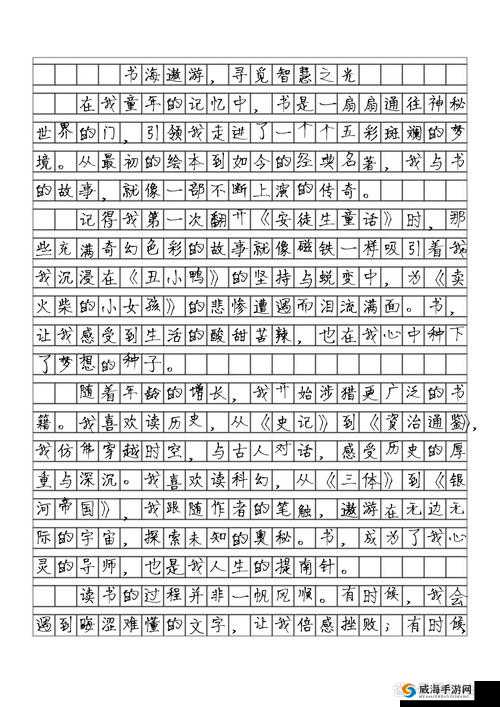 书海遨游，寻觅智慧之光
在我童年的记忆中，书是一扇扇通往神秘
世界的门，引领我走进了一个个五彩斑斓的梦
境。从最初的绘本到如今的经典名著，我与书
的故事，就像一部不断上演的传奇。
记得我第一次翻开《安徒生童话》时，那
些充满奇幻色彩的故事就像磁铁一样吸引着我
我沉浸在《丑小鸭》的坚持与蜕变中，为《卖
火柴的小女孩》的悲惨遭遇而泪流满面。书，
让我感受到生活的酸甜苦辣，也在我心中种下
了梦想的种子。
随着年龄的增长，我开始涉猎更广泛的书
籍。我喜欢读历史，从《史记》到《资治通鉴》，
我仿佛穿越时空，与古人对话，感受历史的厚
重与深沉。我喜欢读科幻，从《三体》到《银
河帝国》，我跟随作者的笔触，遨游在无边无
际的宇宙，探索未知的奥秘。书，成为了我心
灵的导师，也是我人生的指南针。
读书的过程并非一帆风顺。有时候，我会
遇到晦涩难懂的文字，让我倍感挫败；有时候
威海手游网